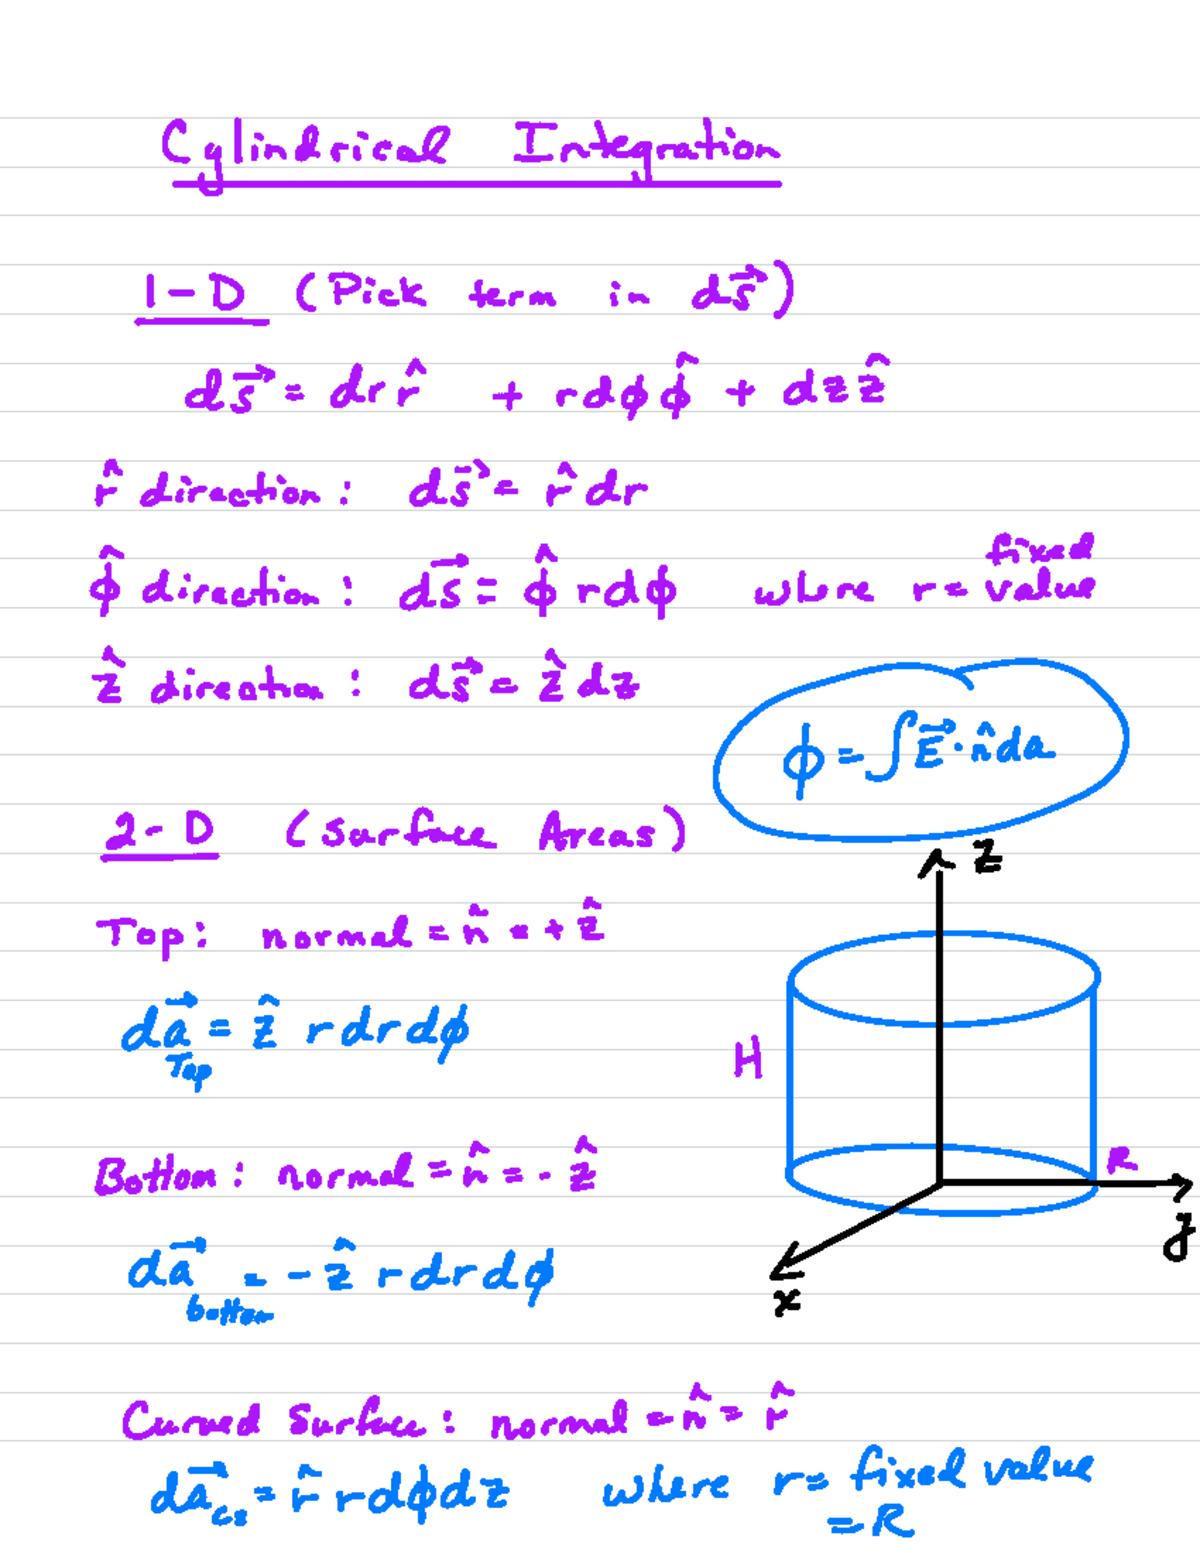 Cylindrical Integration
1-D (Pick term in ds⃗)
ds⃗ = dr r̂ + rdϕ ϕ̂ + dz ẑ
r̂ direction: ds⃗ = r̂ dr
ϕ̂ direction: ds⃗ = ϕ̂ rdϕ where r = fixed value
ẑ direction: ds⃗ = ẑ dz
ϕ = ∫E⃗·n̂da
2-D (Surface Areas)
z
Top: normal = n̂ = + ẑ
da⃗_Top = ẑ rdrdϕ
H
Bottom: normal = n̂ = - ẑ
R
y
da⃗_bottom = - ẑ rdrdϕ
x
Curved Surface: normal = n̂ = r̂
da⃗_cs = r̂ rdϕdz where r = fixed value
= R